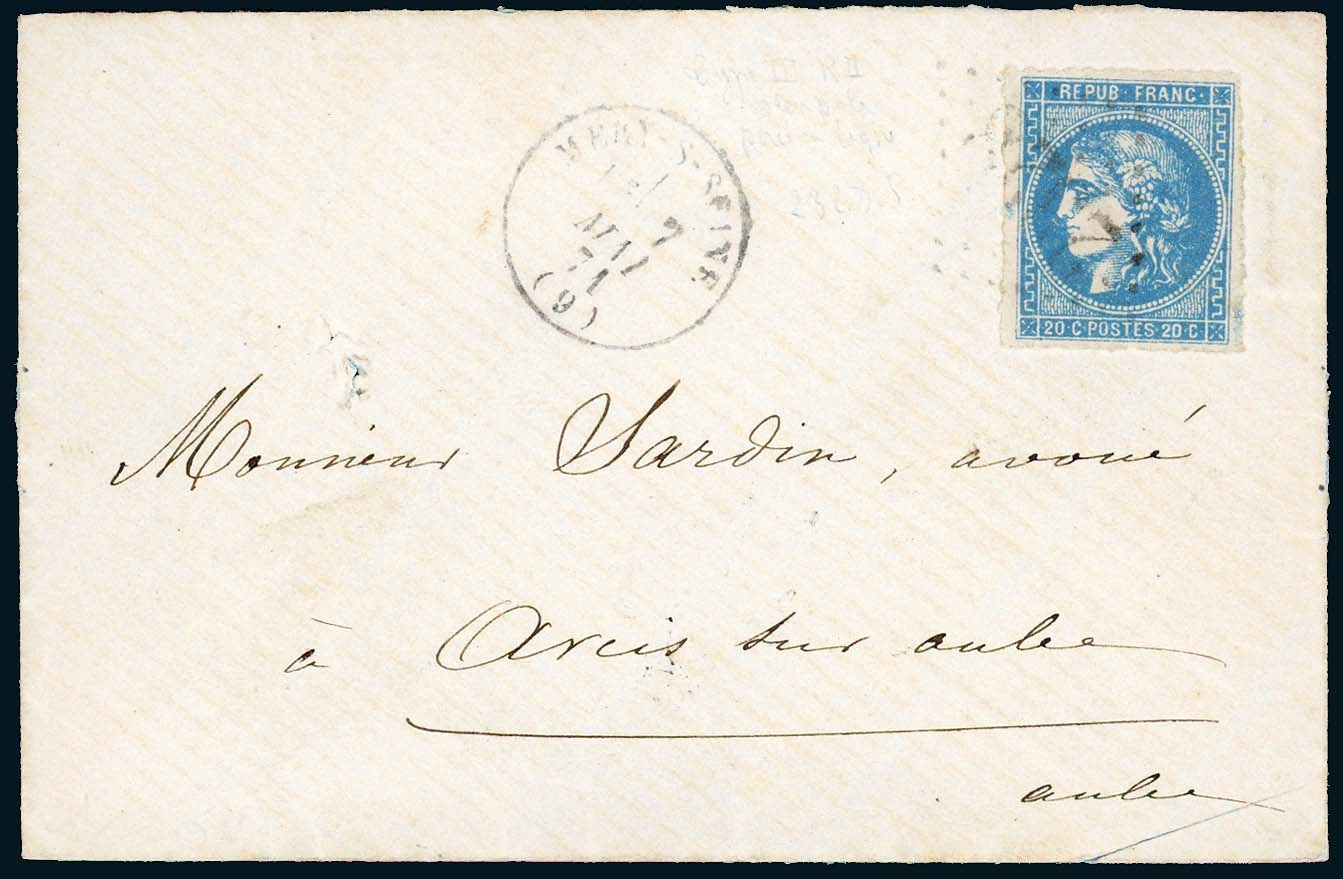 REPUB·FRANC·
20·C·POSTES·20·C
MERY-S-SEINE
7
MAI
71
(9)
Type III R II
Monsieur Sardin, avoué
à Arcis sur aube
aube